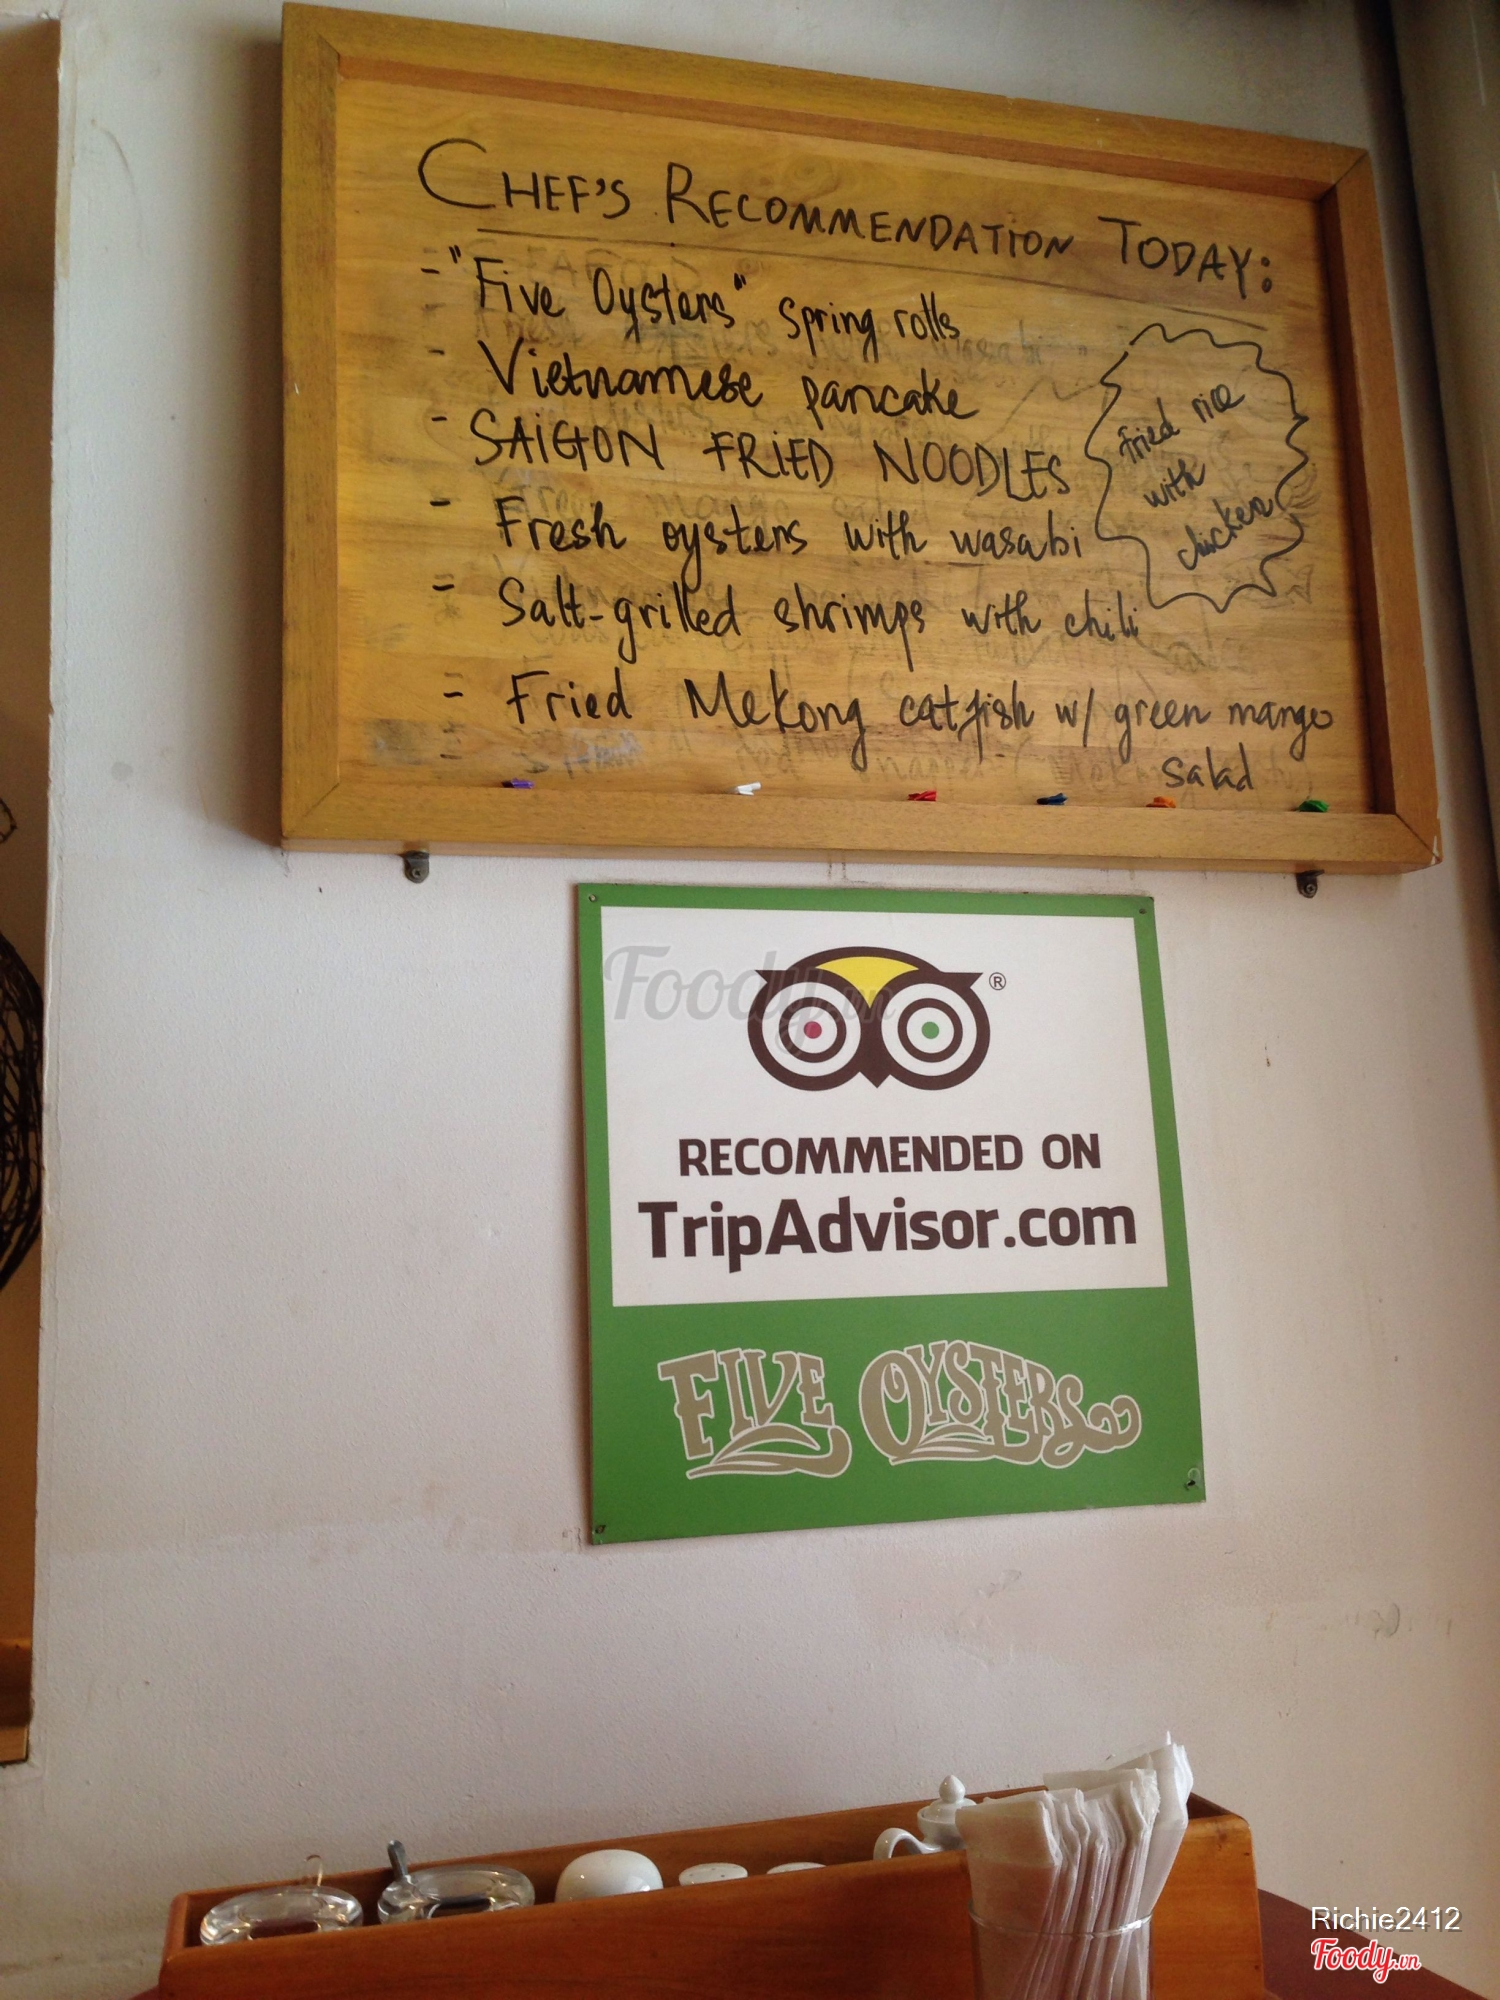 CHEF'S RECOMMENDATION TODAY:
- "Five Oysters" spring rolls
- Vietnamese pancake
- SAIGON FRIED NOODLES
- Fresh oysters with wasabi
- Salt-grilled shrimps with chili
- Fried Mekong catfish w/ green mango
salad
Fried rice
with
chicken
Foody.vn
®
RECOMMENDED ON
TripAdvisor.com
FIVE OYSTERS
Richie2412
Foody.vn